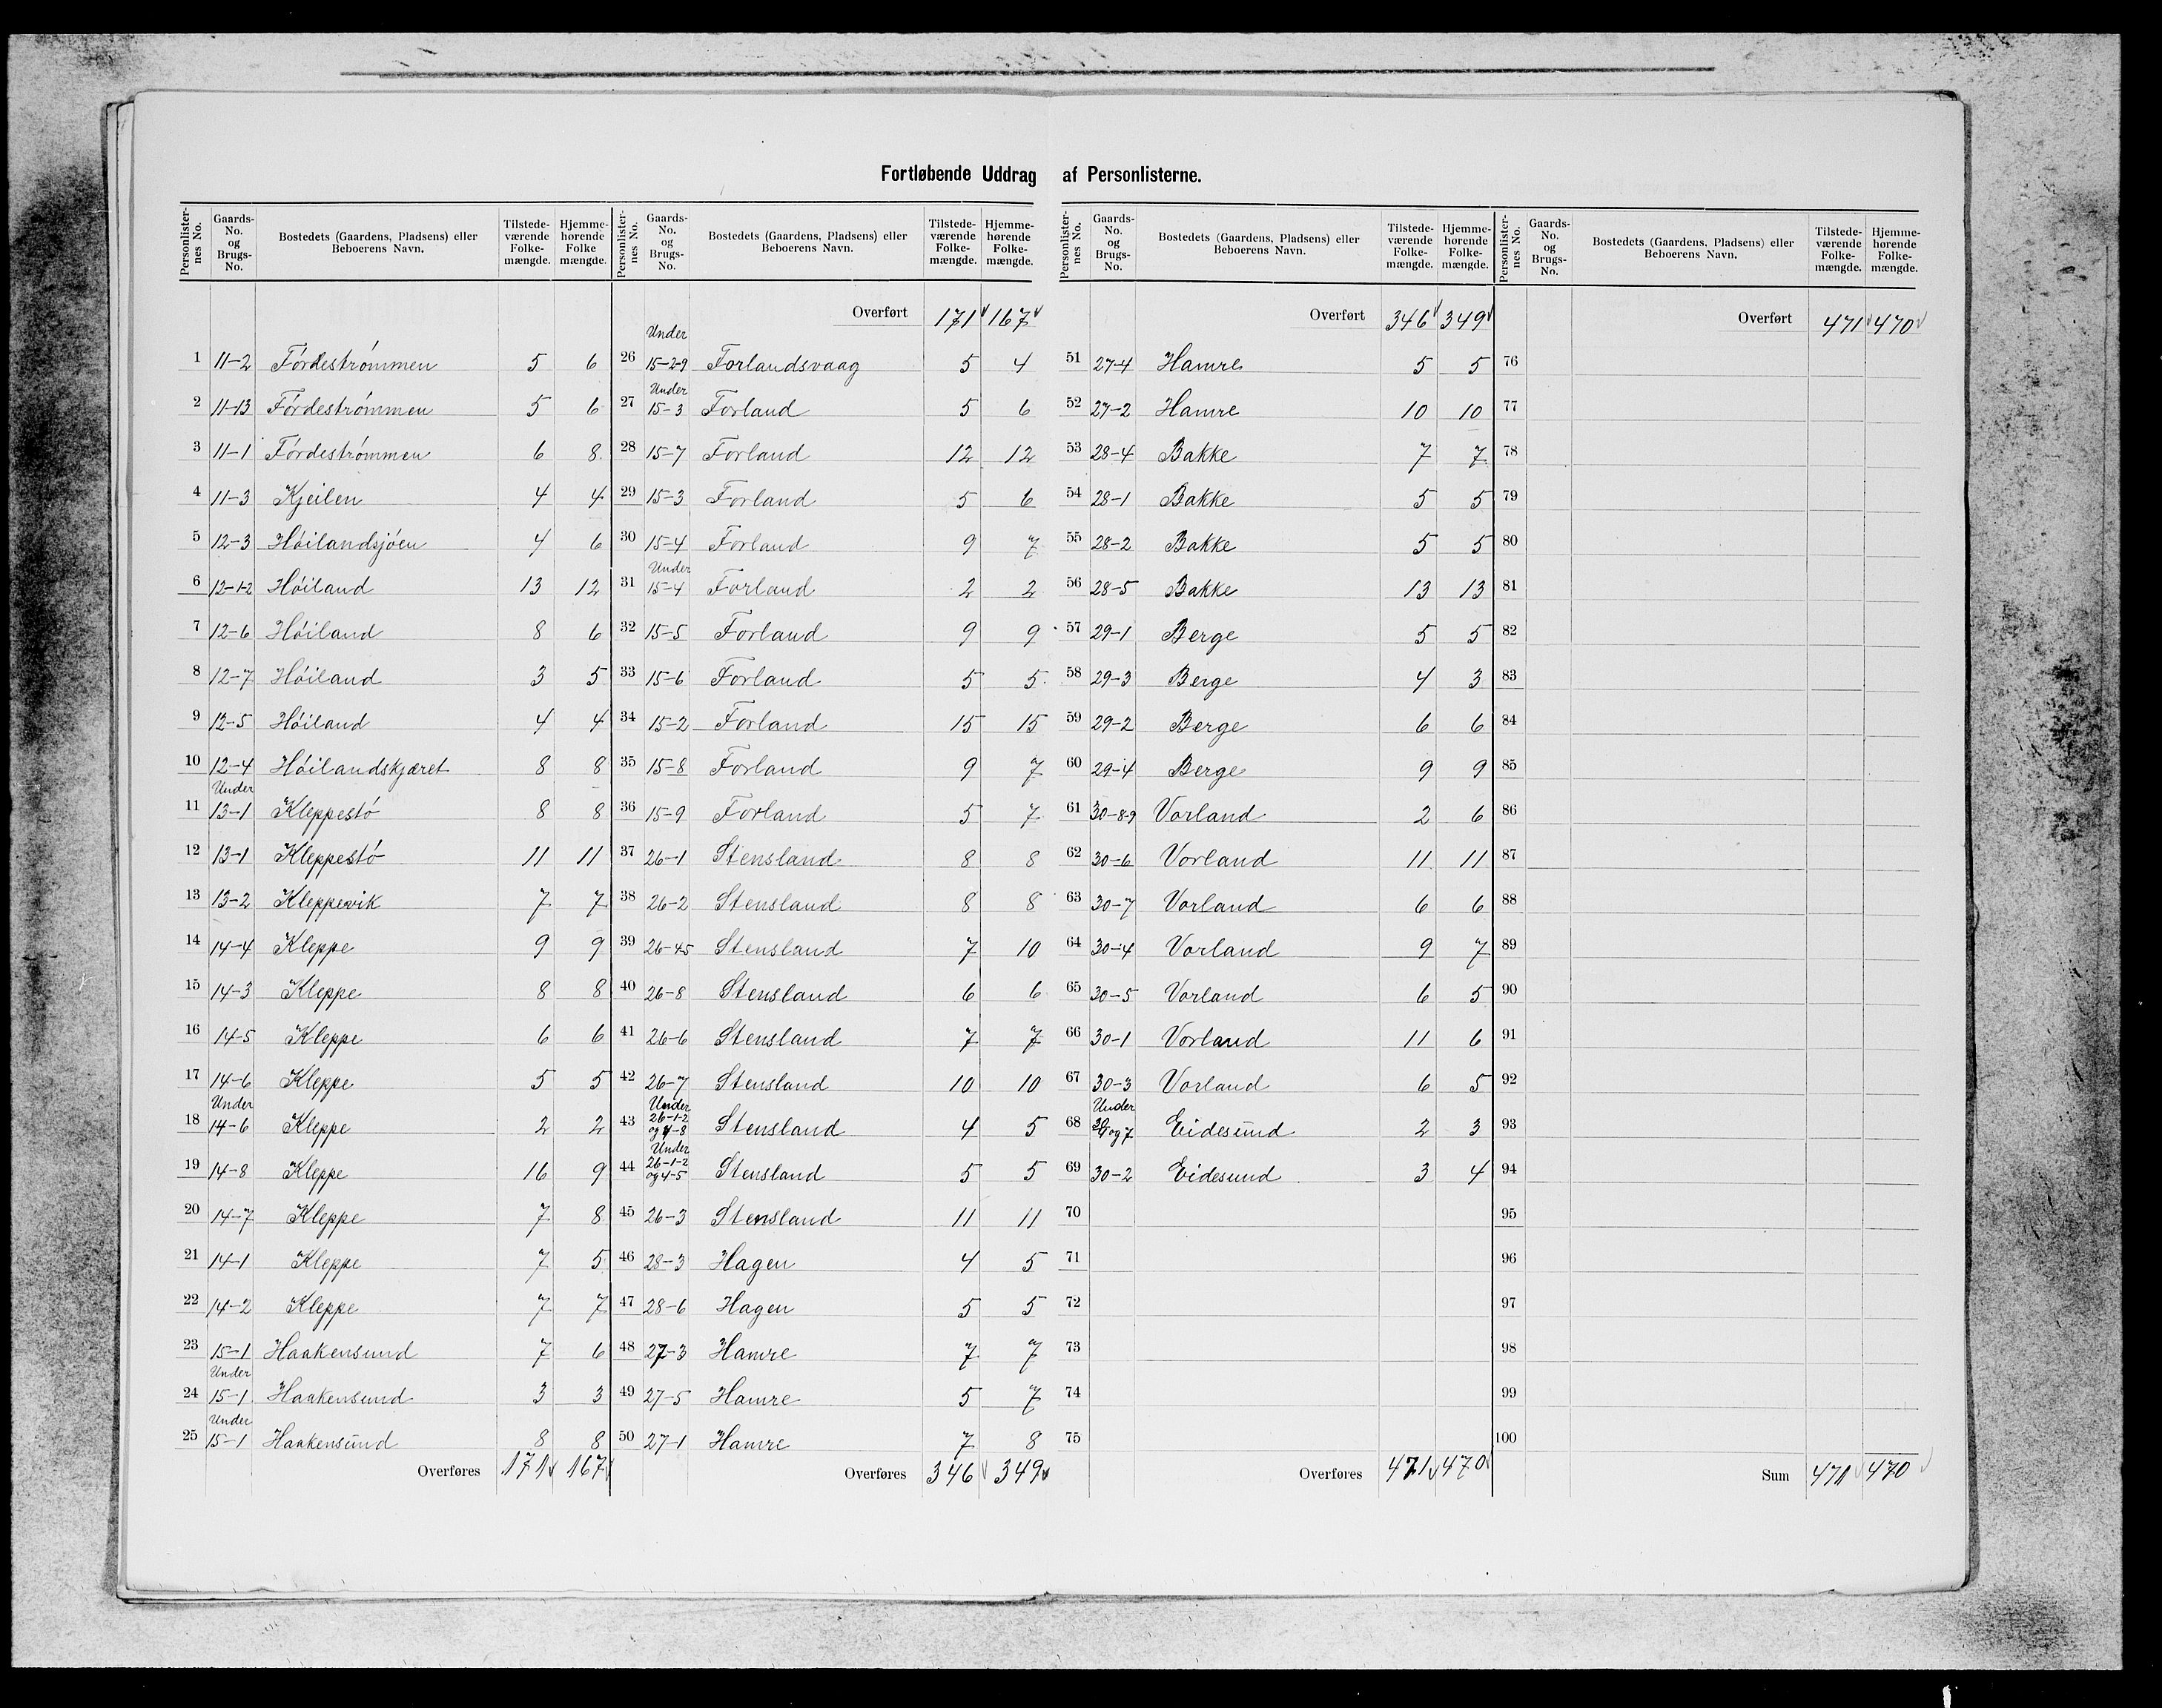 Fortløbende Uddrag af Personlisterne.
Personlisternes No. Gaards-No. og Brugs-No. Bostedets (Gaardens, Pladsens) eller Beboerens Navn. Tilstedeværende Folkemængde. Hjemmehørende Folkemængde.
1 11-2 Førdestrømmen 5 6
2 11-13 Førdestrømmen 5 6
3 11-1 Førdestrømmen 6 8
4 11-3 Kjeilen 4 4
5 12-3 Høilandsjøen 4 6
6 12-1-2 Høiland 13 12
7 12-6 Høiland 8 6
8 12-7 Høiland 3 5
9 12-5 Høiland 4 4
10 12-4 Høilandskjæret 8 8
11 Under 13-1 Kleppestø 8 8
12 13-1 Kleppestø 11 11
13 13-2 Kleppevik 7 7
14 14-4 Kleppe 9 9
15 14-3 Kleppe 8 8
16 14-5 Kleppe 6 6
17 14-6 Kleppe 5 5
18 Under 14-6 Kleppe 2 2
19 14-8 Kleppe 16 9
20 14-7 Kleppe 7 8
21 14-1 Kleppe 7 5
22 14-2 Kleppe 7 7
23 15-1 Haakensund 7 6
24 Under 15-1 Haakensund 3 3
25 Under 15-1 Haakensund 8 8
Overføres 171 167
Personlisternes No. Gaards-No. og Brugs-No. Bostedets (Gaardens, Pladsens) eller Beboerens Navn. Tilstedeværende Folkemængde. Hjemmehørende Folkemængde.
Overført 171 167
26 Under 15-2-9 Forlandsvaag 5 4
27 Under 15-3 Forland 5 6
28 15-7 Forland 12 12
29 15-3 Forland 5 6
30 15-4 Forland 9 7
31 Under 15-4 Forland 2 2
32 15-5 Forland 9 9
33 15-6 Forland 5 5
34 15-2 Forland 15 15
35 15-8 Forland 9 7
36 15-9 Forland 5 7
37 26-1 Stensland 8 8
38 26-2 Stensland 8 8
39 26-45 Stensland 7 10
40 26-8 Stensland 6 6
41 26-6 Stensland 7 7
42 26-7 Stensland 10 10
43 Under 26-1-2 og 4-8 Stensland 4 5
44 Under 26-1-2 og 4-5 Stensland 5 5
45 26-3 Stensland 11 11
46 28-3 Hagen 4 5
47 28-6 Hagen 5 5
48 27-3 Hamre 7 7
49 27-5 Hamre 5 7
50 27-1 Hamre 7 8
Overføres 346 349
Personlisternes No. Gaards-No. og Brugs-No. Bostedets (Gaardens, Pladsens) eller Beboerens Navn. Tilstedeværende Folkemængde. Hjemmehørende Folkemængde.
Overført 346 349
51 27-4 Hamre 5 5
52 27-2 Hamre 10 10
53 28-4 Bakke 7 7
54 28-1 Bakke 5 5
55 28-2 Bakke 5 5
56 28-5 Bakke 13 13
57 29-1 Berge 5 5
58 29-3 Berge 4 3
59 29-2 Berge 6 6
60 29-4 Berge 9 9
61 30-8-9 Vorland 2 6
62 30-6 Vorland 11 11
63 30-7 Vorland 6 6
64 30-4 Vorland 9 7
65 30-5 Vorland 6 5
66 30-1 Vorland 11 6
67 30-3 Vorland 6 5
68 Under 30 og 7 Eidesund 2 3
69 30-2 Eidesund 3 4
70
71
72
73
74
75
Overføres 471 470
Personlisternes No. Gaards-No. og Brugs-No. Bostedets (Gaardens, Pladsens) eller Beboerens Navn. Tilstedeværende Folkemængde. Hjemmehørende Folkemængde.
Overført 471 470
76
77
78
79
80
81
82
83
84
85
86
87
88
89
90
91
92
93
94
95
96
97
98
99
100
Sum 471 470